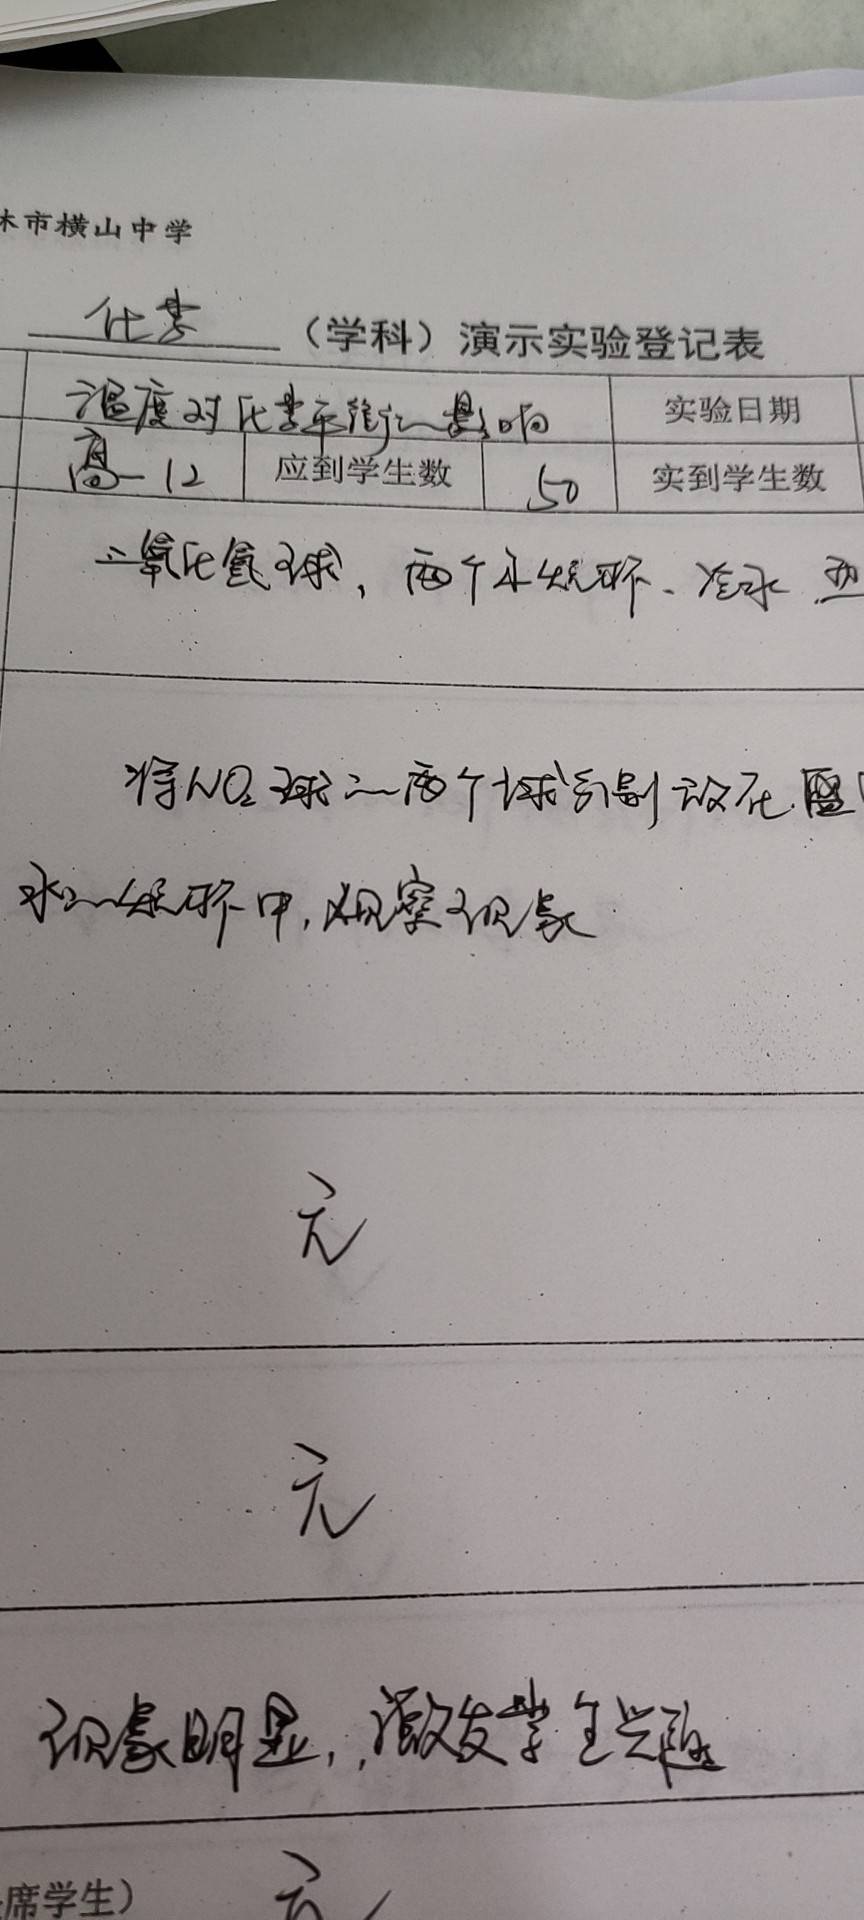 木市横山中学
化学（学科）演示实验登记表
温度对化学平衡的影响 实验日期
高一12 应到学生数 50 实到学生数
二氧化氮球，两个小烧杯、冷水、热
将NO₂球的两个球分别放在盛
水的烧杯中，观察现象
无
无
现象明显，激发学生兴趣
席学生） 无